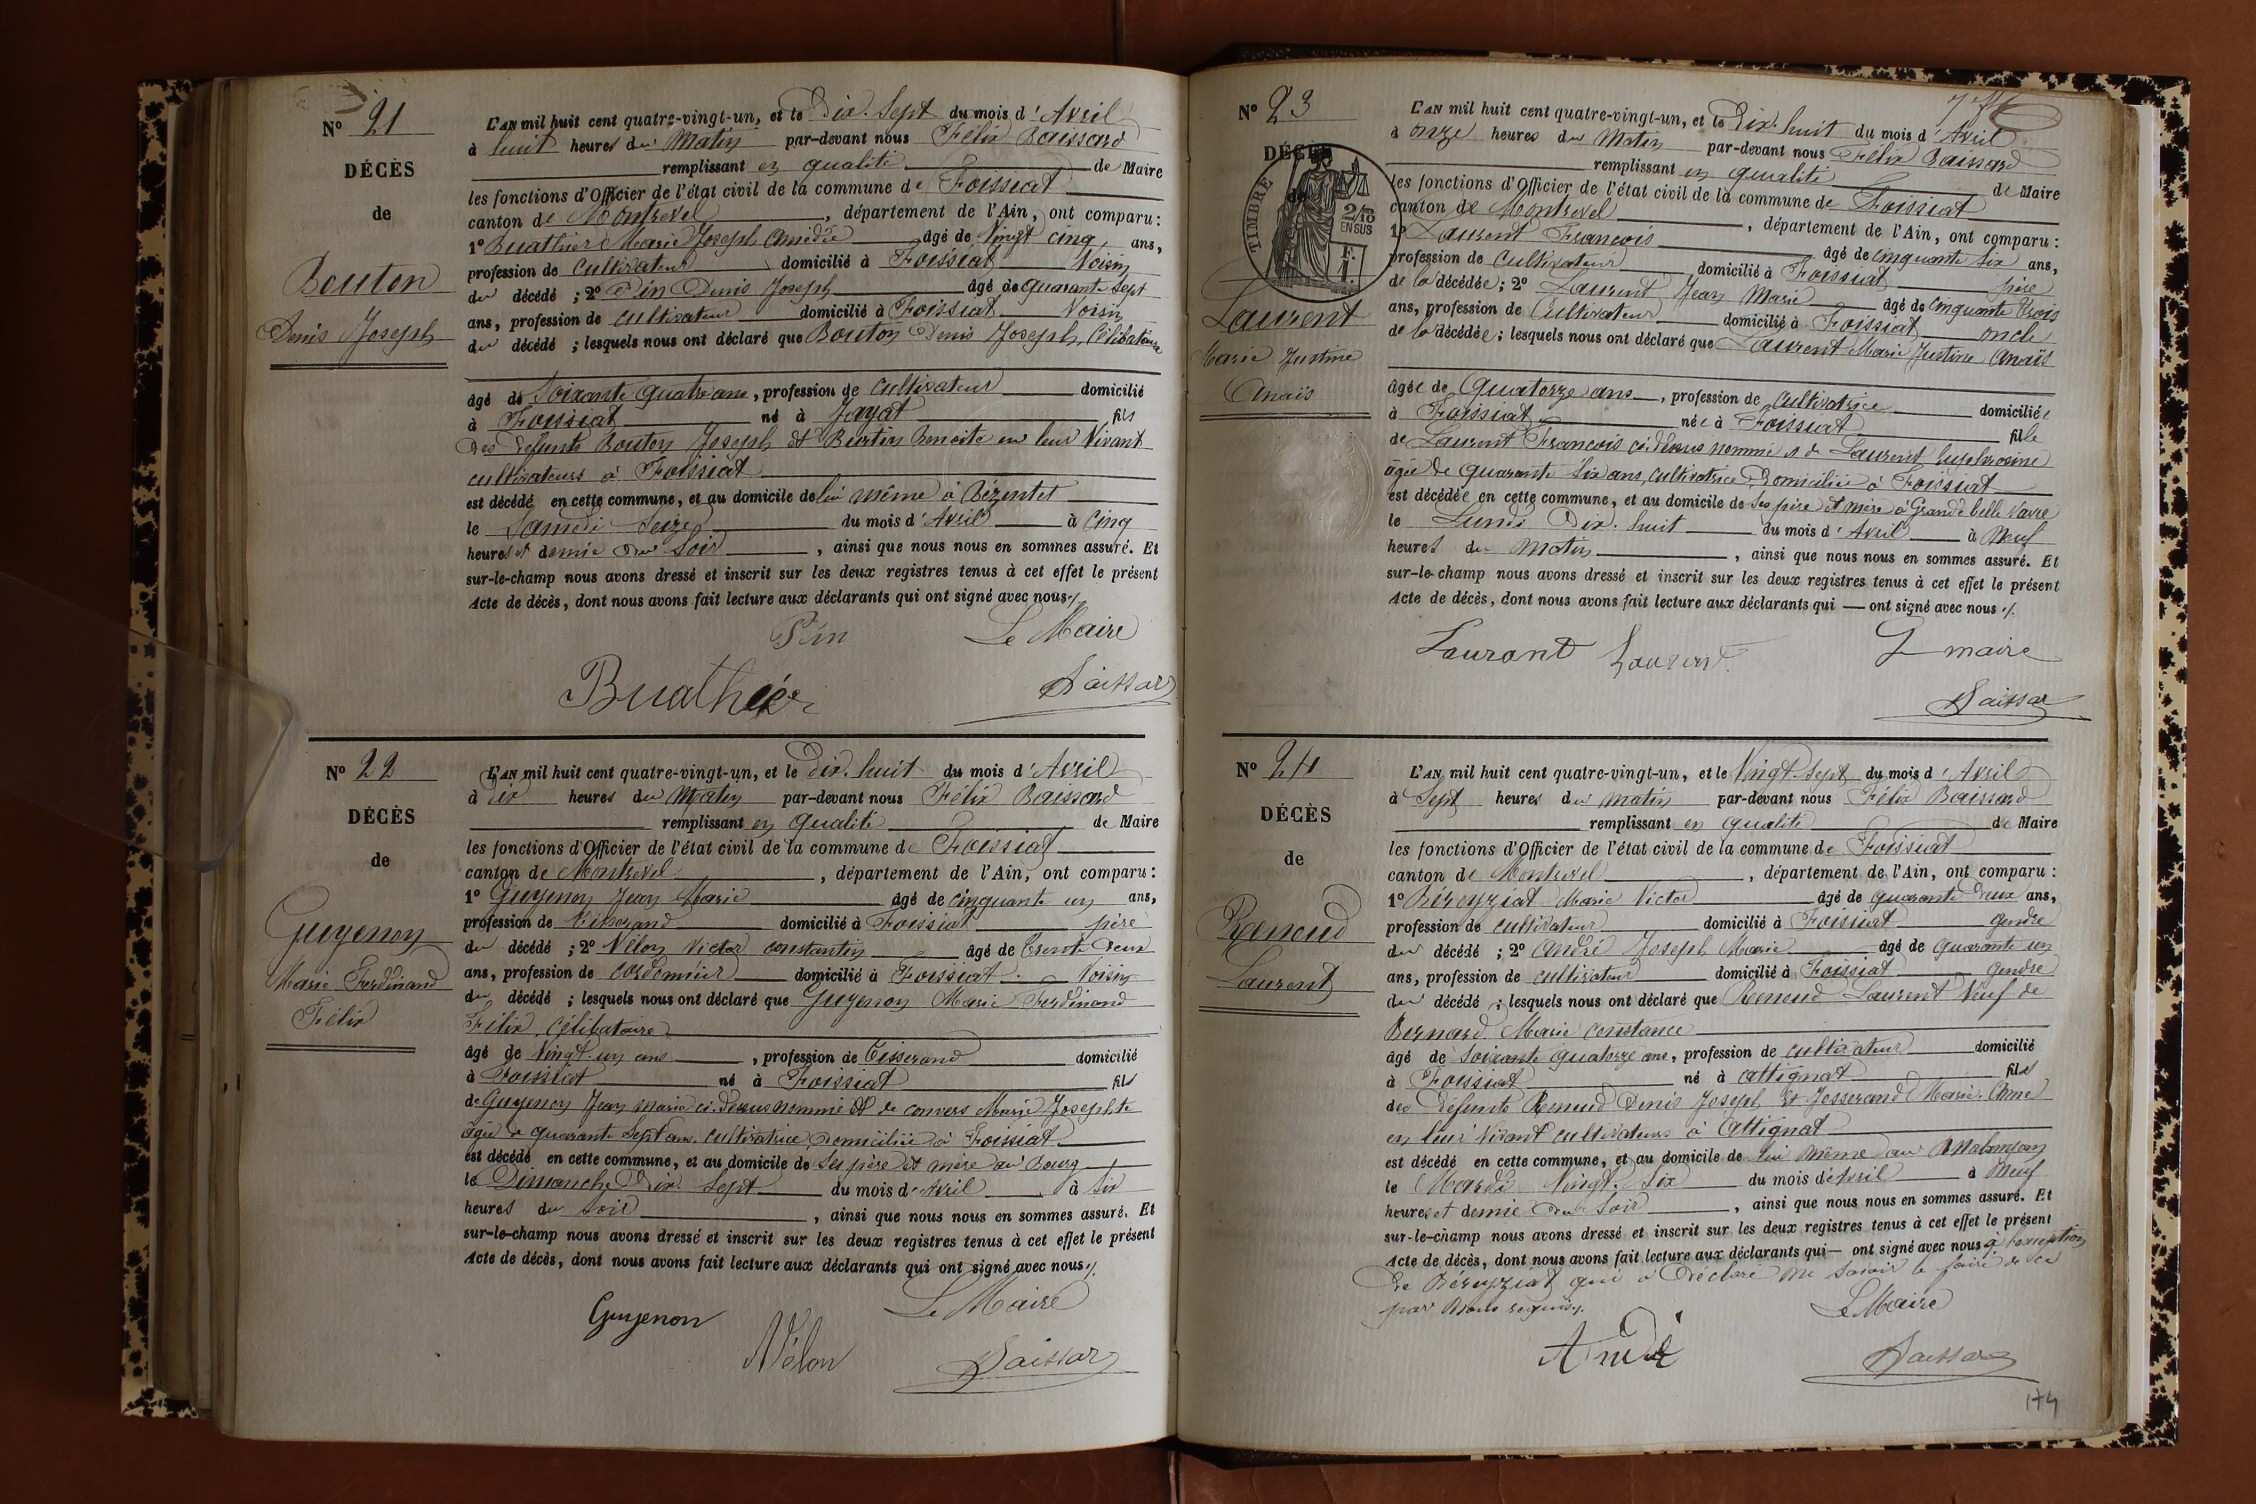 Nº 21
DÉCÈS
de
Bouton
Denis Joseph
L'AN mil huit cent quatre-vingt-un, et le Dix-Sept du mois d'Avril
à huit heures du Matin par-devant nous Félix Baissard
remplissant en qualité de Maire
les fonctions d'Officier de l'état civil de la commune de Foissiat
canton de Montrevel, département de l'Ain, ont comparu :
1º Buathier Marie Joseph Amédée âgé de Vingt cinq ans,
profession de cultivateur domicilié à Foissiat Voisin
du décédé ; 2º Pin Denis Joseph âgé de quarante Sept
ans, profession de cultivateur domicilié à Foissiat Voisin
du décédé ; lesquels nous ont déclaré que Bouton Denis Joseph, Célibataire
âgé de Soixante quatre ans, profession de cultivateur domicilié
à Foissiat né à Jayat fils
des défunts Bouton Joseph et Benoite en leur Vivant
cultivateurs à Foissiat
est décédé en cette commune, et au domicile de lui même à Bézentet
le Samedi Seize du mois d'Avril à Cinq
heures et demie du Soir, ainsi que nous nous en sommes assuré. Et
sur-le-champ nous avons dressé et inscrit sur les deux registres tenus à cet effet le présent
Acte de décès, dont nous avons fait lecture aux déclarants qui ont signé avec nous ./.
Pin Le Maire
Buathier Baissard
Nº 22
DÉCÈS
de
Guyenon
Marie Ferdinand
Félix
L'AN mil huit cent quatre-vingt-un, et le Dix-huit du mois d'Avril
à Dix heures du Matin par-devant nous Félix Baissard
remplissant en qualité de Maire
les fonctions d'Officier de l'état civil de la commune de Foissiat
canton de Montrevel, département de l'Ain, ont comparu :
1º Guyenon Jean Marie âgé de cinquante un ans,
profession de Tisserand domicilié à Foissiat père
du décédé ; 2º Vélon Victor constantin âgé de Trente Deux
ans, profession de cordonnier domicilié à Foissiat Voisin
du décédé ; lesquels nous ont déclaré que Guyenon Marie Ferdinand
Félix, Célibataire
âgé de Vingt un ans, profession de Tisserand domicilié
à Foissiat né à Foissiat fils
de Guyenon Jean marie ci-Dessus nommé et de convers Marie Josephte
âgée de quarante Sept ans, cultivatrice Domiciliée à Foissiat
est décédé en cette commune, et au domicile de Ses père et mère au Bourg
le Dimanche Dix-Sept du mois d'Avril à Six
heures du soir, ainsi que nous nous en sommes assuré. Et
sur-le-champ nous avons dressé et inscrit sur les deux registres tenus à cet effet le présent
Acte de décès, dont nous avons fait lecture aux déclarants qui ont signé avec nous ./.
Guyenon Le Maire
Vélon Baissard
Nº 23
DÉCÈS
de
TIMBRE
2/10
EN SUS
Laurent
Marie Justine
Anaïs
L'AN mil huit cent quatre-vingt-un, et le Dix-huit du mois d'Avril
à onze heures du Matin par-devant nous Félix Baissard
remplissant en qualité de Maire
les fonctions d'Officier de l'état civil de la commune de Foissiat
canton de Montrevel, département de l'Ain, ont comparu :
1º Laurent François âgé de cinquante Six ans,
profession de cultivateur domicilié à Foissiat père
de la décédée ; 2º Laurent Jean Marie âgé de Cinquante Trois
ans, profession de Cultivateur domicilié à Foissiat oncle
de la décédée ; lesquels nous ont déclaré que Laurent Marie Justine Anaïs
âgée de Quatorze ans, profession de cultivatrice domiciliée
à Foissiat née à Foissiat fille
de Laurent François ci-dessus nommé et de Laurent Euphrosine
âgée de quarante Six ans, cultivatrice Domiciliée à Foissiat
est décédée en cette commune, et au domicile de Ses père et mère à Grande belle Vavre
le Lundi Dix-huit du mois d'Avril à Neuf
heures du Matin, ainsi que nous nous en sommes assuré. Et
sur-le-champ nous avons dressé et inscrit sur les deux registres tenus à cet effet le présent
Acte de décès, dont nous avons fait lecture aux déclarants qui — ont signé avec nous ./.
Laurent Laurent maire
Baissard
Nº 24
DÉCÈS
de
Renoud
Laurent
L'AN mil huit cent quatre-vingt-un, et le Vingt-Sept du mois d'Avril
à Sept heures du matin par-devant nous Félix Baissard
remplissant en qualité de Maire
les fonctions d'Officier de l'état civil de la commune de Foissiat
canton de Montrevel, département de l'Ain, ont comparu :
1º Béreyziat Marie Victor âgé de quarante Deux ans,
profession de cultivateur domicilié à Foissiat gendre
du décédé ; 2º André Joseph Marie âgé de quarante un
ans, profession de cultivateur domicilié à Foissiat gendre
du décédé ; lesquels nous ont déclaré que Renoud Laurent Veuf de
Bernard Marie constance
âgé de Soixante quatorze ans, profession de cultivateur domicilié
à Foissiat né à Attignat fils
des Défunts Renoud Denis Joseph et Josserand Marie-Anne
en leur Vivant cultivateurs à Attignat
est décédé en cette commune, et au domicile de lui même au
le Mardi Vingt-Six du mois d'Avril à Neuf
heures et demie du Soir, ainsi que nous nous en sommes assuré. Et
sur-le-champ nous avons dressé et inscrit sur les deux registres tenus à cet effet le présent
Acte de décès, dont nous avons fait lecture aux déclarants qui — ont signé avec nous à l'exception
de Béreyziat qui a Déclaré ne savoir le faire de ce
par Nous requis ./.
Le Maire
André Baissard
174